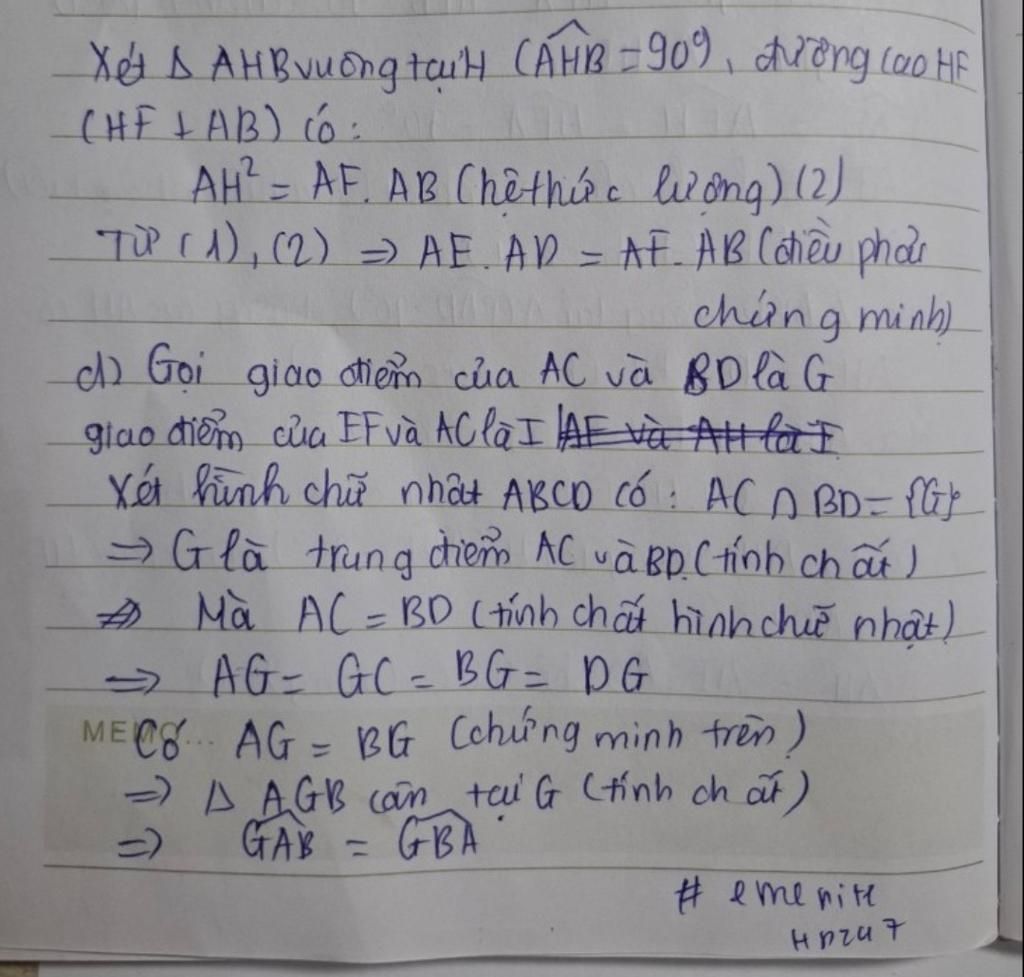 Xét Δ AHB vuông tại H (AHB = 90°), đường cao HF
(HF ⊥ AB) có:
AH² = AF. AB (hệ thức lượng) (2)
Từ (1), (2) ⇒ AE. AD = AF. AB (điều phải
chứng minh)
d) Gọi giao điểm của AC và BD là G
giao điểm của EF và AC là I AF và AH là I
Xét hình chữ nhật ABCD có: AC ∩ BD = {G}
⇒ G là trung điểm AC và BD. (tính chất)
⇒ Mà AC = BD (tính chất hình chữ nhật)
⇒ AG = GC = BG = DG
MEMO... Có AG = BG (chứng minh trên)
⇒ Δ AGB cân tại G (tính chất)
⇒ GAB = GBA